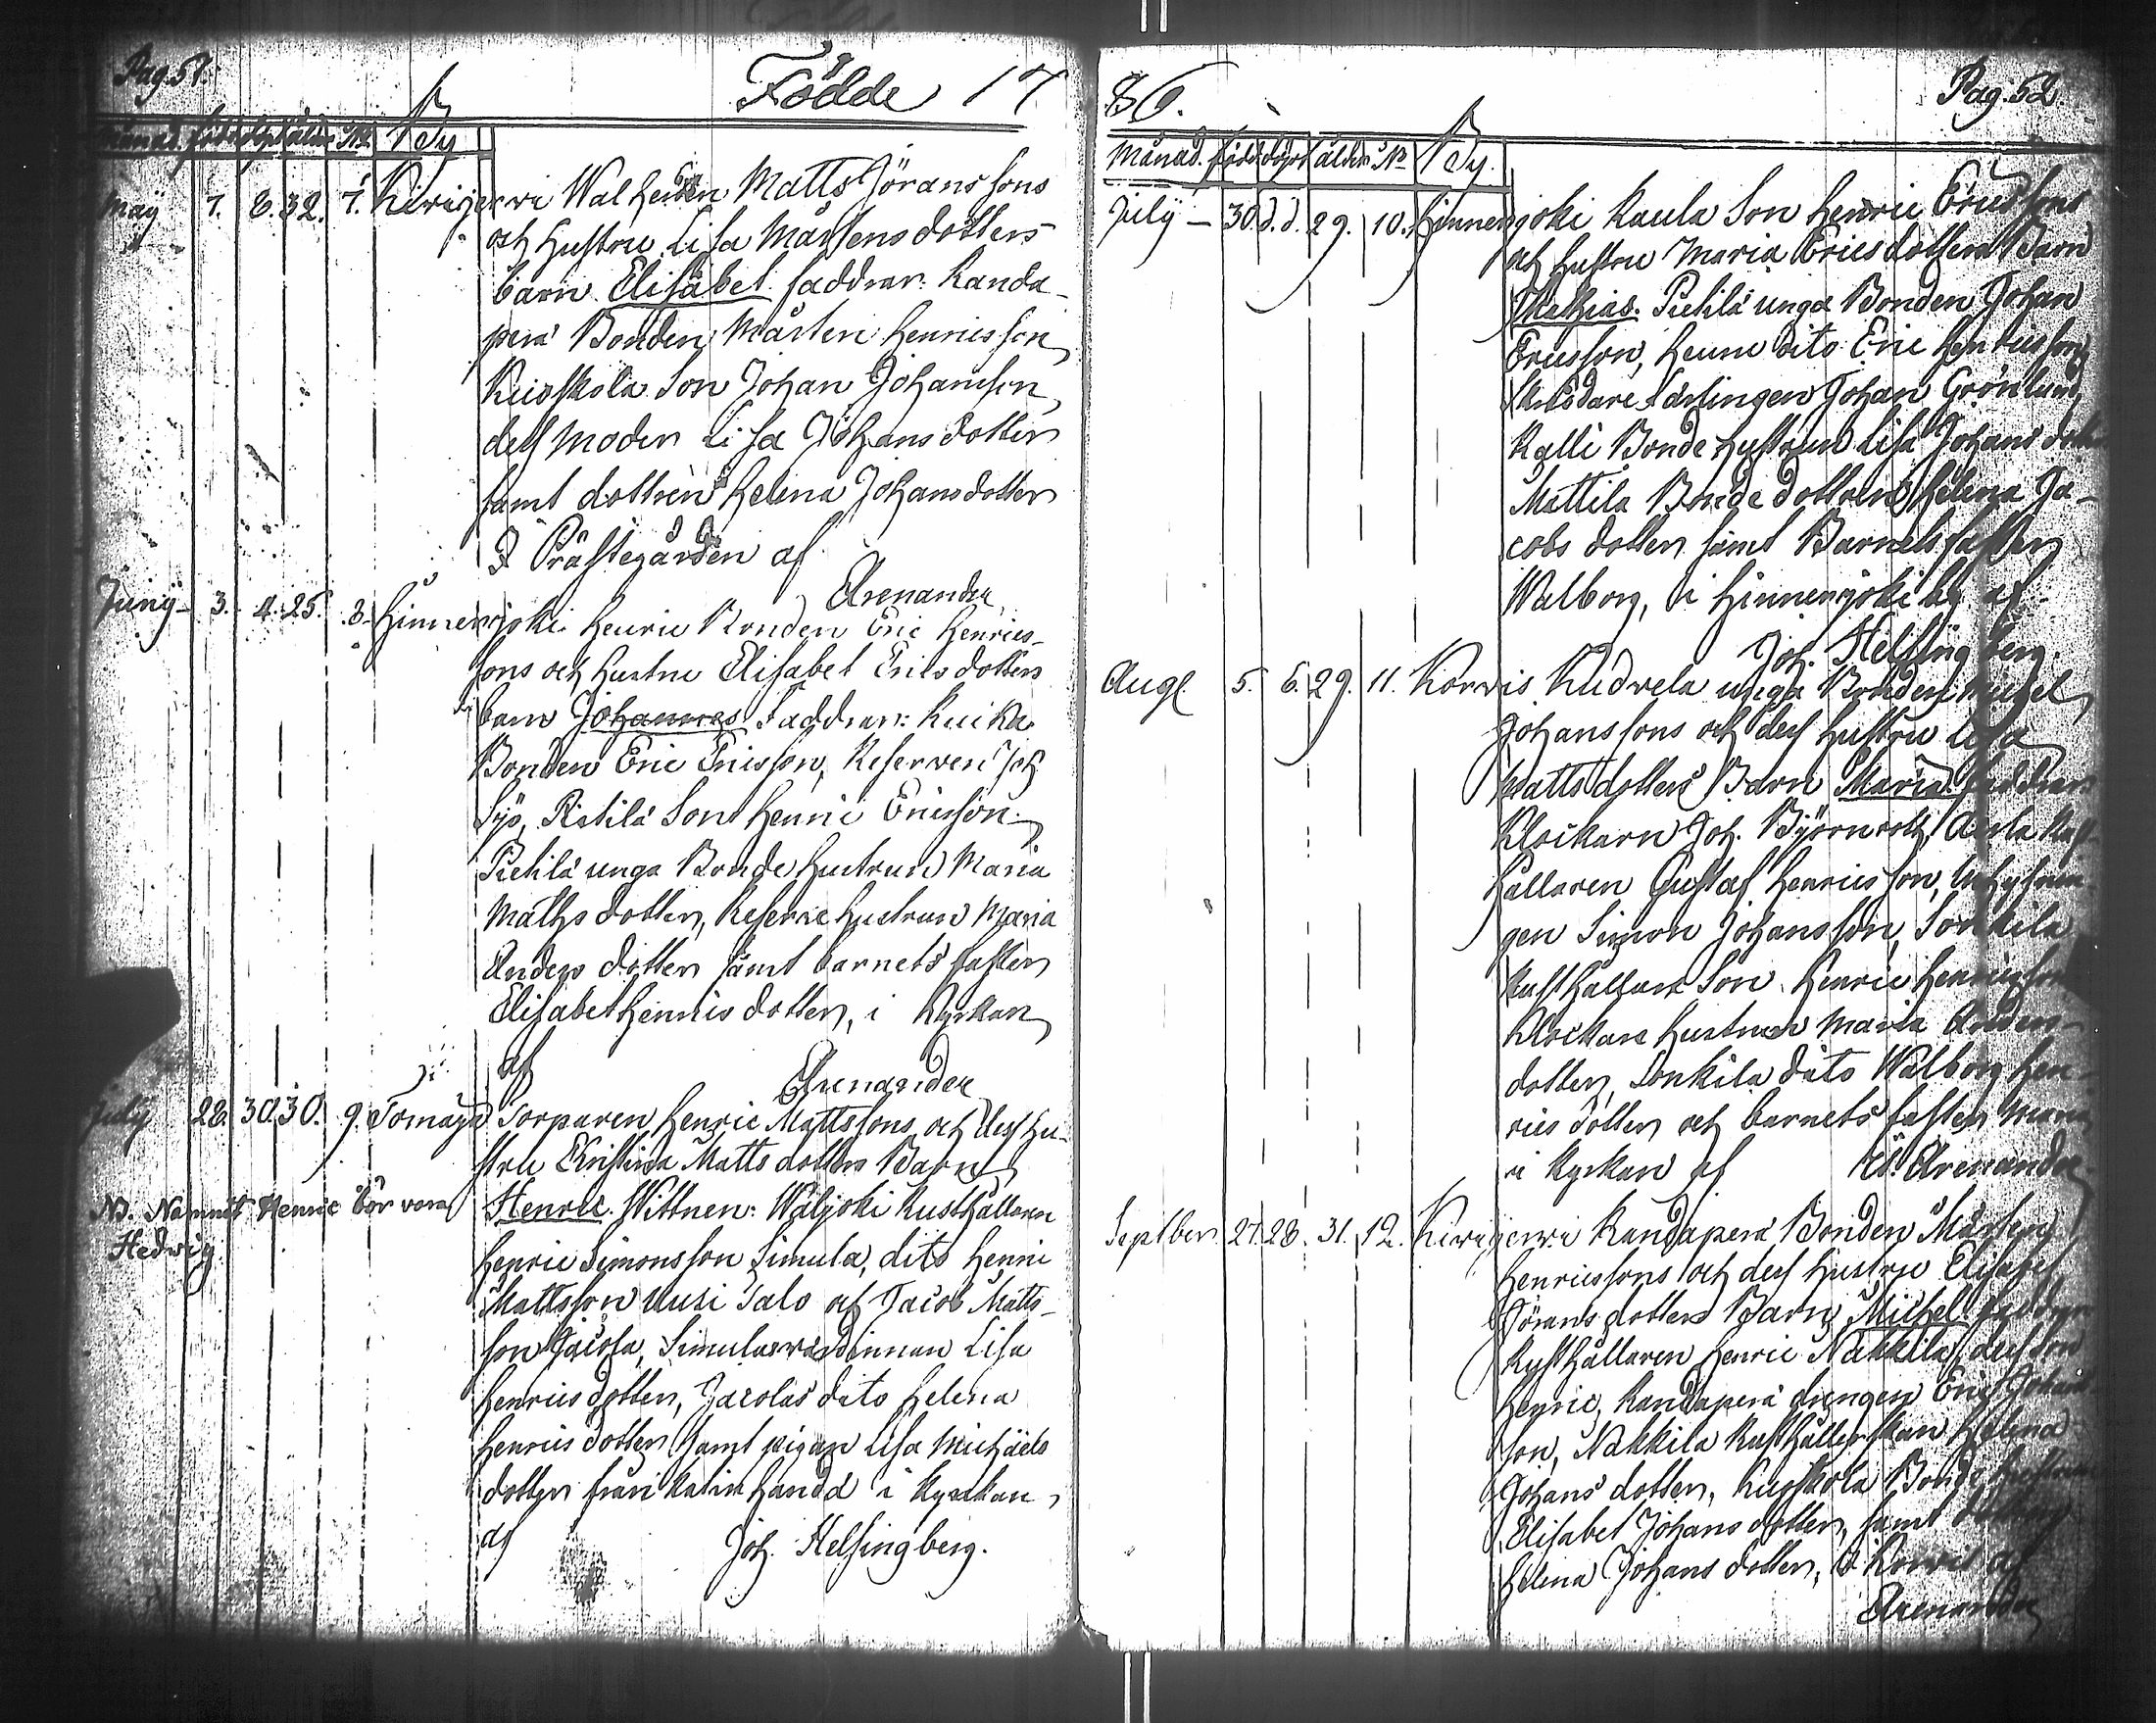 Pag. 51.
Födde 17
Månad. född döpt ålder No By
May 7. 8. 32. 7. Kiwijerwi Walheden Matts Jöranssons
och hustru Lisa Mårtens dotters
barn Elisabet. faddrar: Kanda-
perä Bonden Mårten Henricsson
Kuoskola Son Johan Johansson,
dess moder Lisa Johans dotter
samt dottren Helena Johansdotter
I Prästegården af
Arenander
Juny 3. 4. 25. 8. Hinnerjoki Heuru Bonden Eric Henrics-
sons och hustru Elisabet Erics dotters
barn Johannes. Faddrar: Kuika
Bonden Eric Ericsson, Reserven Joh.
Sjö, Ristilä Son Henric Ericsson
Pietilä unga Bonde hustrun Maria
Maths dotter, Reserve hustrun Maria
Anders dotter samt barnets faster
Elisabet Henrics dotter, i Kyrkan
af
Arenander
July 28. 30. 30. 9. Torparen Henric Mattssons och dess hu-
stru Kristina Matts dotters Barn
NB. Namnet Henric bör vara
Hedwig
Henric. Wittnen: Waljoki Rusthållaren
Henric Simonsson Simula, dito Henric
Mattsson Uusi Salo och Jacob Matts-
son Jacola, Simulas wärdinnan Lisa
Henrics dotter, Jacolas dito Helena
Henrics dotter samt pigan Lisa Michäels
dotter från i Kyrkan
af Joh. Helsingberg.
86. Pag. 52.
Månad. född döpt ålder No By.
July 30. d. d. 29. 10. Hinnerjoki Kaula Son Henric Ericssons
och hustru Maria Erics dotters Barn
Mathias. Pietilä unga Bonden Johan
Ericsson, Heurru dito Eric Henricsson
Skräddare Lärlingen Johan Grönlund,
Kalli Bonde hustrun Lisa Johans dotter
Mattila Bonde dottren Helena Ja-
cobs dotter samt Barnets faster
Walborg, i Hinnerjoki by af
Joh. Helsingberg.
Aug. 5. 6. 29. 11. Korwis Kudwela unga Bonden Michel
Johanssons och dess hustru Lisa
Matts dotters Barn Maria. faddrar
Klockarn Joh. Björnroth, Rust-
hållaren Gustaf Henricsson,
gen Simon Johansson, Sonkila
Rusthållare Son Henric Henricsson
Klockare hustrun Maria Anders-
dotter, Sonkila dito Walborg Hen-
rics dotter och barnets faster Maria
i Kyrkan af Arenander
Septber 27. 28. 31. 12. Kiwijerwi Kandaperä Bonden Mårten
Henricssons och dess hustru Elisabet
Jörans dotters Barn Michel. faddrar
Rusthållaren Henric Nakkila, dess Son
Henric, Kandaperä drengen Eric Johans
son, Nakkila Rusthållerskan Helena
Johans dotter, Kuoskola Bonde hustrun
Elisabet Johans dotter, samt dottren
Helena Johans dotter, i Korwis af
Arenander